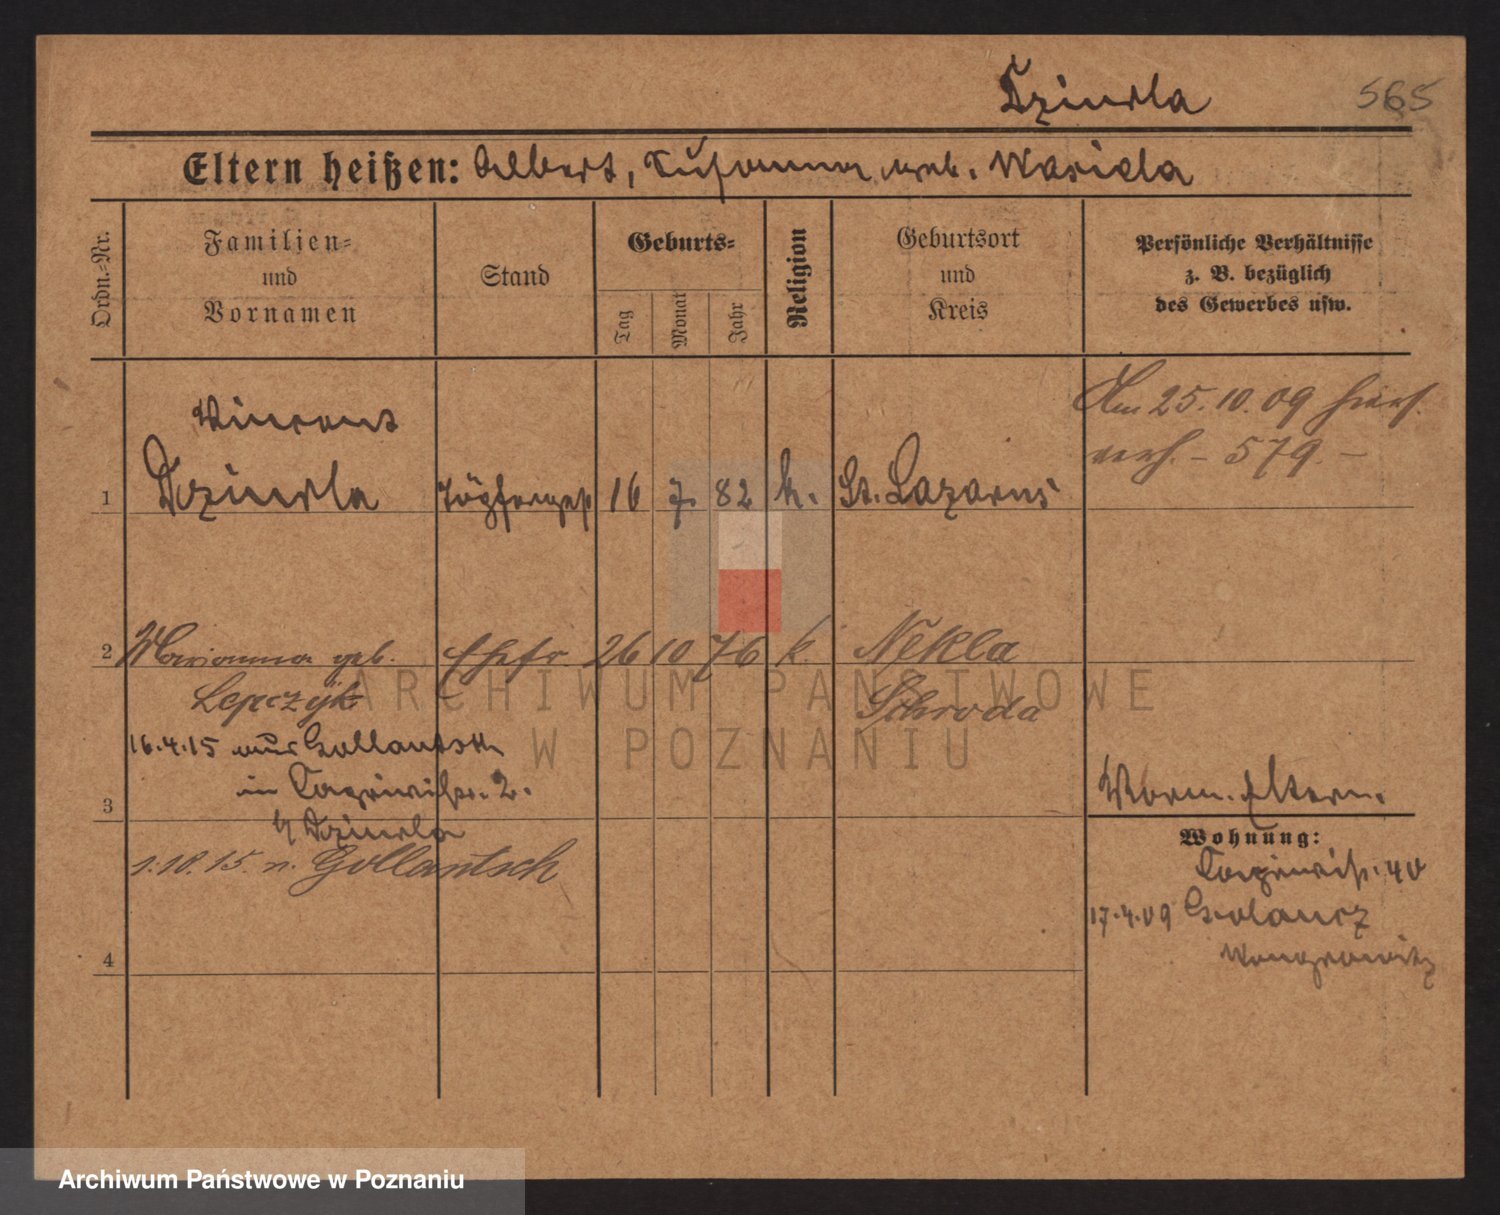 Dziurla 565
Eltern heißen: Albert, Susanna geb. Warida
Ordn.-Nr.
Familien-
und
Vornamen
Stand
Geburts-
Tag
Monat
Jahr
Religion
Geburtsort
und
Kreis
Persönliche Verhältnisse
z. B. bezüglich
des Gewerbes usw.
Am 25.10.09 hiers.
verh. – 579. –
Vincent
1 Dziurla 16 7. 82 k. St. Lazarus
2 Marianna geb. Ehefr. 26 10 76 k. Nekla
Lepczyk Schroda
16.4.15 aus Gollantsch
in 2.
3
b/ Dziurla
1.10.15. n. Gollantsch
4
Eltern.
Wohnung:
40
17.4.09 Golancz
Wongrowitz
ARCHIWUM PAŃSTWOWE
W POZNANIU
Archiwum Państwowe w Poznaniu